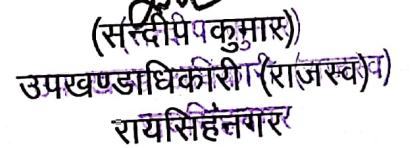 (सन्दीप कुमार)
उपखण्डाधिकारी (राजस्व)
रायसिंहनगर